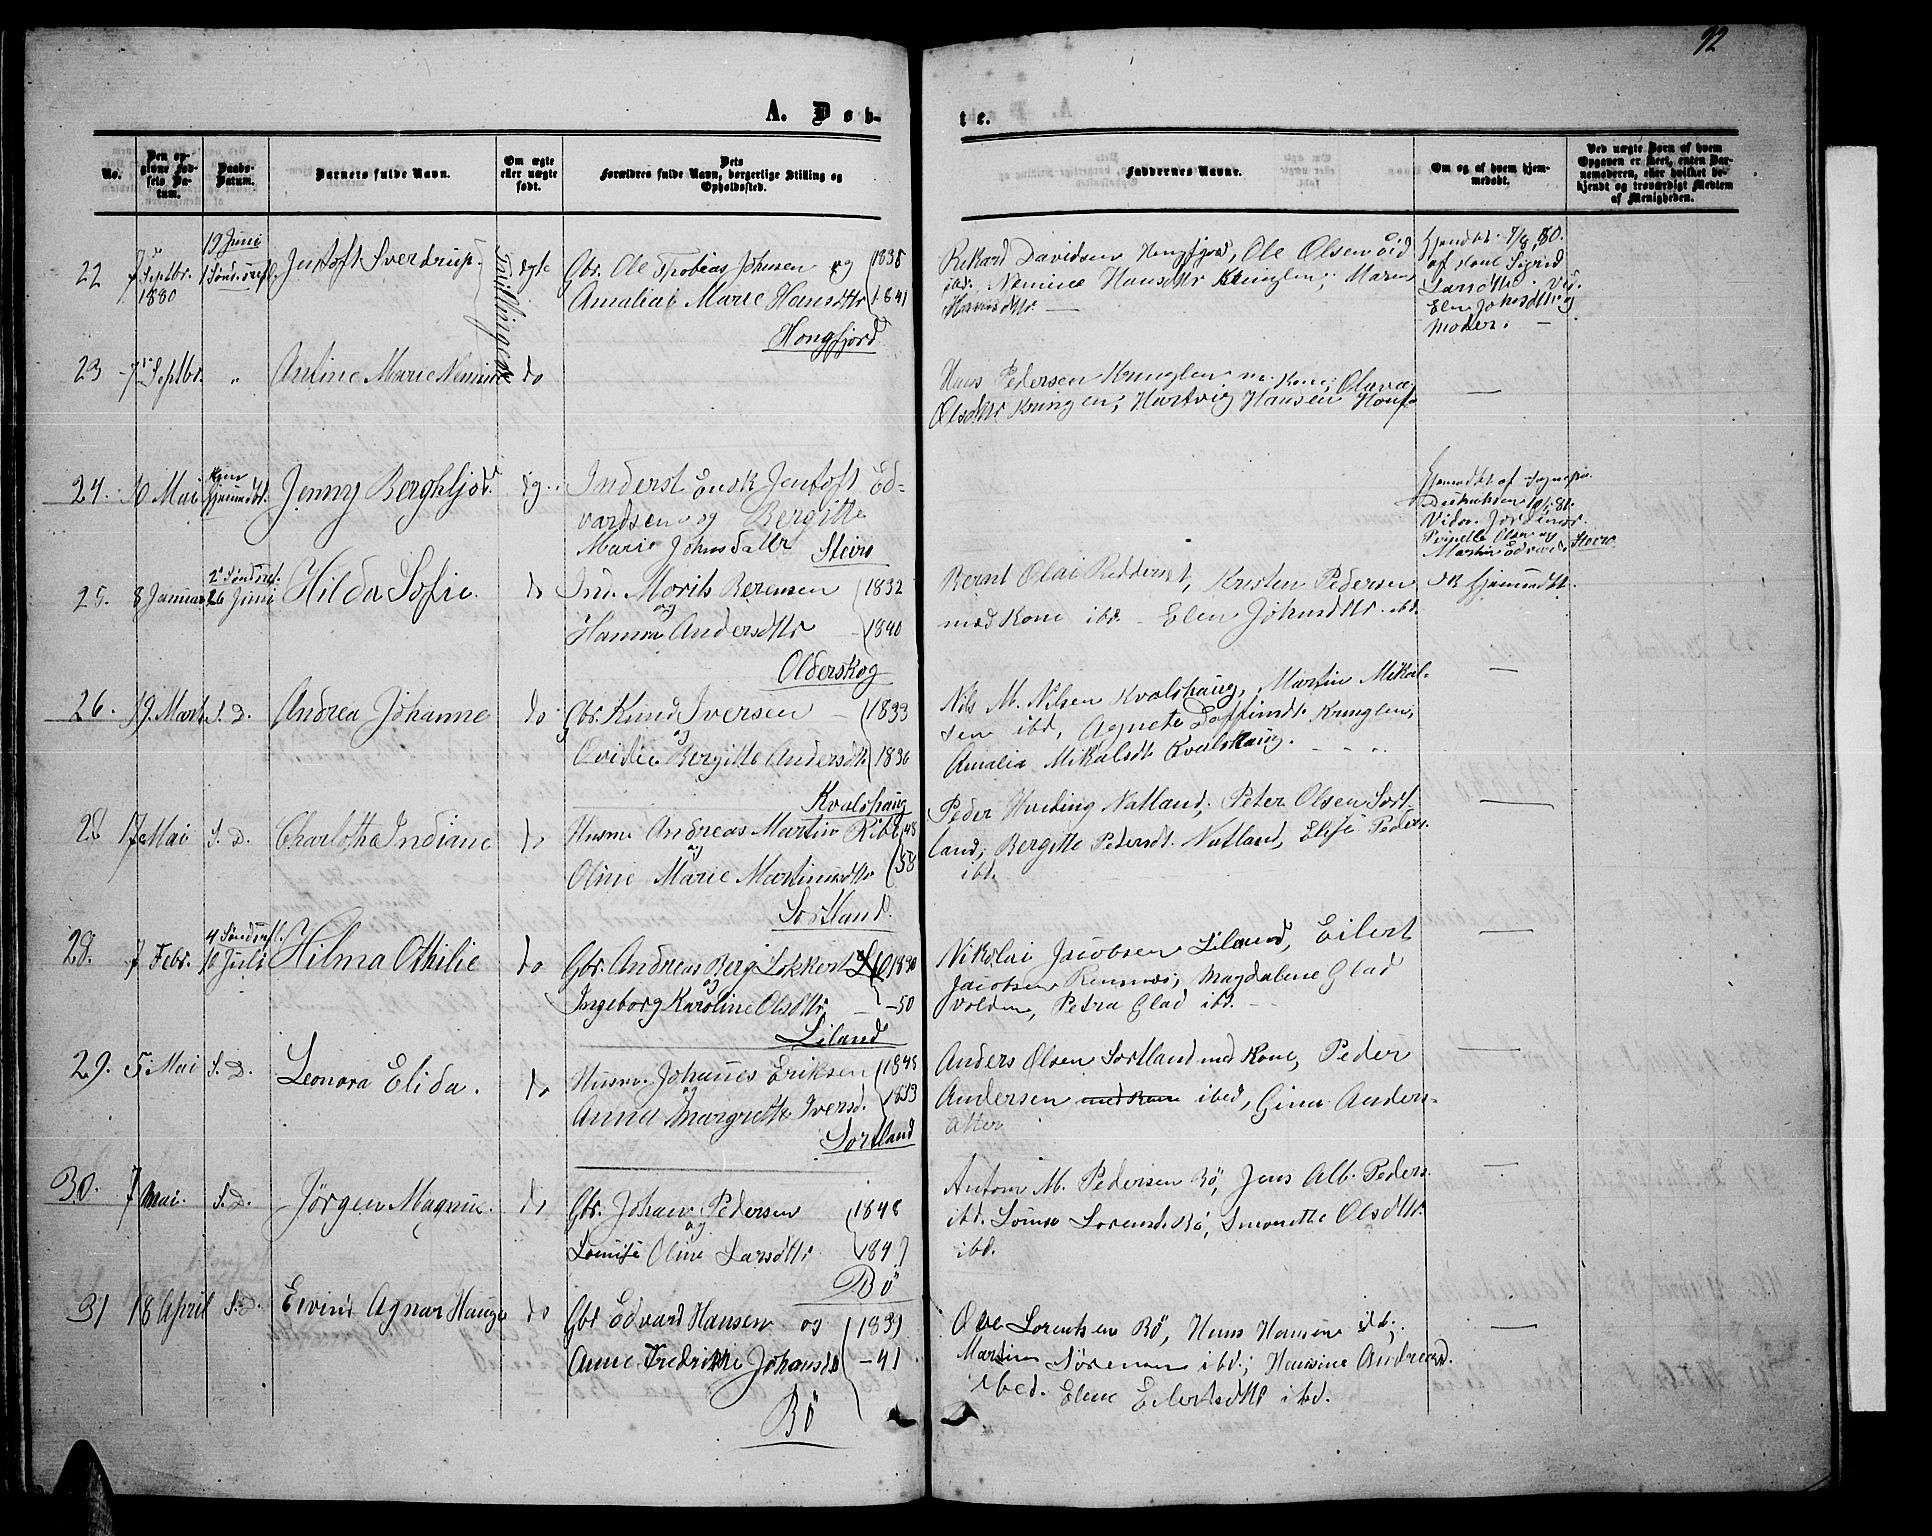 92
A. Døb-
te.
No.
Den opgivne Fødsels Datum.
Daabs-Datum.
Barnets fulde Navn.
Om ægte eller uægte født.
Dets Forældres fulde Navn, borgerlige Stilling og Opholdssted.
Faddernes Navne.
Om og af hvem hjemmedøbt.
Ved uægte Børn af hvem Opgaven er skeet, enten Barnemoderen, eller hvilket bekjendt og troværdigt Medlem af Menigheden.
22 7 Septbr. 1880 19 Juni 1 Sønd. Jentoft Sverdrup. Tvillinger ægte Gbr. Ole Thobias Johnsen og 1838
Amalia Marie Hansdttr 1841
Hongfjord
Rikard Davidsen Hongfjord, Ole Olsen Eid
ibd. Nemine Hansdttr Kringlen; Maren
Hansdttr. —
Hjemdbt. 7/9 80.
af Kone Sigrid
Larsdttr. Vid.
Elen Johnsdttr og
Moder. —
23 7 Septbr. " Antine Marie Nemine do
Hans Pedersen Kringlen m. Kone; Olava
Olsdttr Kringen; Hartvig Hansen Honf. —
24. 10 Mai Hjemdbt. Jenny Berghljod. æg. Inderst Enok Jentoft Ed-
vardsen og Bergitte
Marie Johnsdattr Steiro
Hjemdbt af Sognepr.
Martin Edvards. Steiro
25. 8 Januar 26 Juni Hilda Sofie. do Ind. Morits Berensen 1832
og
Hanna Andersdttr 1840
Olderskog
Bernt Olai Reddersst, Kristen Pedersen
med Kone ibd. Elen Johnsdttr ibd.
26. 19. Marts S. D. Andrea Johanne do Gbr. Knud Iversen 1833
og
Ovidie Bergitte Andersdt 1836
Kvalshaug
Nils M. Nilsen Kvalshaug, Martin Mikal-
sen ibd, Agnete Daffinsdt. Kringlen;
Amalia Mikalsdt Kvalshaug. —
28 17 Mai S. D. Charlotha Indiane do Husm. Andreas Martin Ribe 48
og
Oline Marie Martinusdttr 58
Sortland.
Peder Hveding Natland, Peter Olsen Sort-
land; Bergitte Pedersdt. Natland, Elise Peders.
ibd. —
28. 7 Febr. 10 Juli Hilma Othilie do Gbr. Andreas Berg Lokkert 1830
og
Ingeborg Karoline Olsdttr. —50
Liland
Nikolai Jacobsen Liland, Eilert
Jacobsen Rinsnæs; Magdalene Glad
Volden, Petra Glad ibd. —
29. 5 Mai S. D. Leonora Elida. do Husm. Johannes Eriksen 1848
og
Anna Margrethe Iversd. 1853
Sortland
Anders Olsen Sortland med Kone, Peder
Andersen med Kone ibed, Gina Anders-
atter —
30. 7 Mai. S. D. Jörgen Magnus. do Gbr. Johan Pedersen 1848
og
Lovise Oline Larsdttr 1847
Bö
Antom M. Pedersen Bö, Jens Alb. Peders.
ibd. Lovise Lorensd. Bö, Simonette Olsdttr.
ibd. —
31 18 April S. D. Eivind Agnar Hauge do Gbr Edvard Hansen og 1839
Anne Fredrikke Johansd —41
Bö
Ove Lorentsen Bö, Hans Hansen ibd;
Martin Sörensen ibd.; Hansine Andreasd.
ibed. Eline Eilertsdttr ibd. —